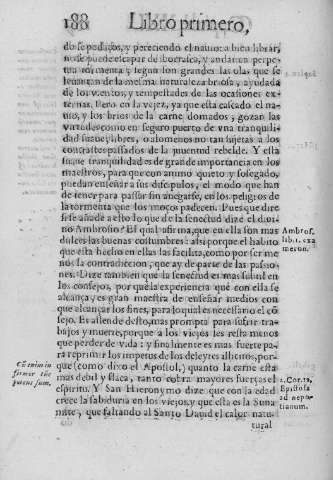 188 Libro primero,
do se pedaços, y pereciendo el nauio: a bien librar,
no se puede escapar de borrasca, y andar en perpe-
tua tormenta; y segun son grandes las olas que se
leuantan de la mesma naturaleza briosa, ayudada
de los vientos, y tempestades de las ocasiones ex-
ternas. Pero en la vejez, ya que està cascado el na-
uio, y los brios de la carne domados, gozan las
virtudes como en seguro puerto de vna tranquili-
dad suaue, libres, o alomenos no tan sujetas a los
contrastes passados de la juuentud rebelde. Y esta
suaue tranquilidad es de grande importancia en los
maestros, para que con animo quieto y sosegado,
puedan enseñar a sus discipulos, el modo que han
de tener para passar sin anegarse, en los peligros de
la tormenta que los moços padecen. Pues que dire
si se añade a esto lo que de la senectud dize el diui-
no Ambrosio? El qual afirma, que en ella son mas
dulces las buenas costumbres: assi porque el habito
que està hecho en ellas las facilita, como por ser me
nos la contradicion, que ay de parte de las passio-
nes. Dize tambien que la senectud es mas vtil en
los consejos, por que la experiencia que con ella se
alcança, es gran maestra de enseñar medios con
que alcançar los fines, para lo qual es necessario el cõ
sejo. Es allende desto, mas prompta para sufrir tra-
bajos y muerte, porque a los viejos les resta menos
que perder de vida: y finalmente es mas fuerte pa-
ra reprimir los impetus de los deleytes illicitos, por-
que (como dixo el Apostol) quanto la carne està
mas debil y flaca, tanto cobra mayores fuerças el
espiritu. Y San Hieronymo dize que con la edad
crece la sabiduria en los viejos, y que esta es la Suna
mite, que faltando al Santo Dauid el calor natu-
tural
Ambros.
lib. 1. exa
meron.
Cũ enim in
firmor tũc
potens sum.
2. Cor. 12.
Epistola
ad nepo-
tianum.